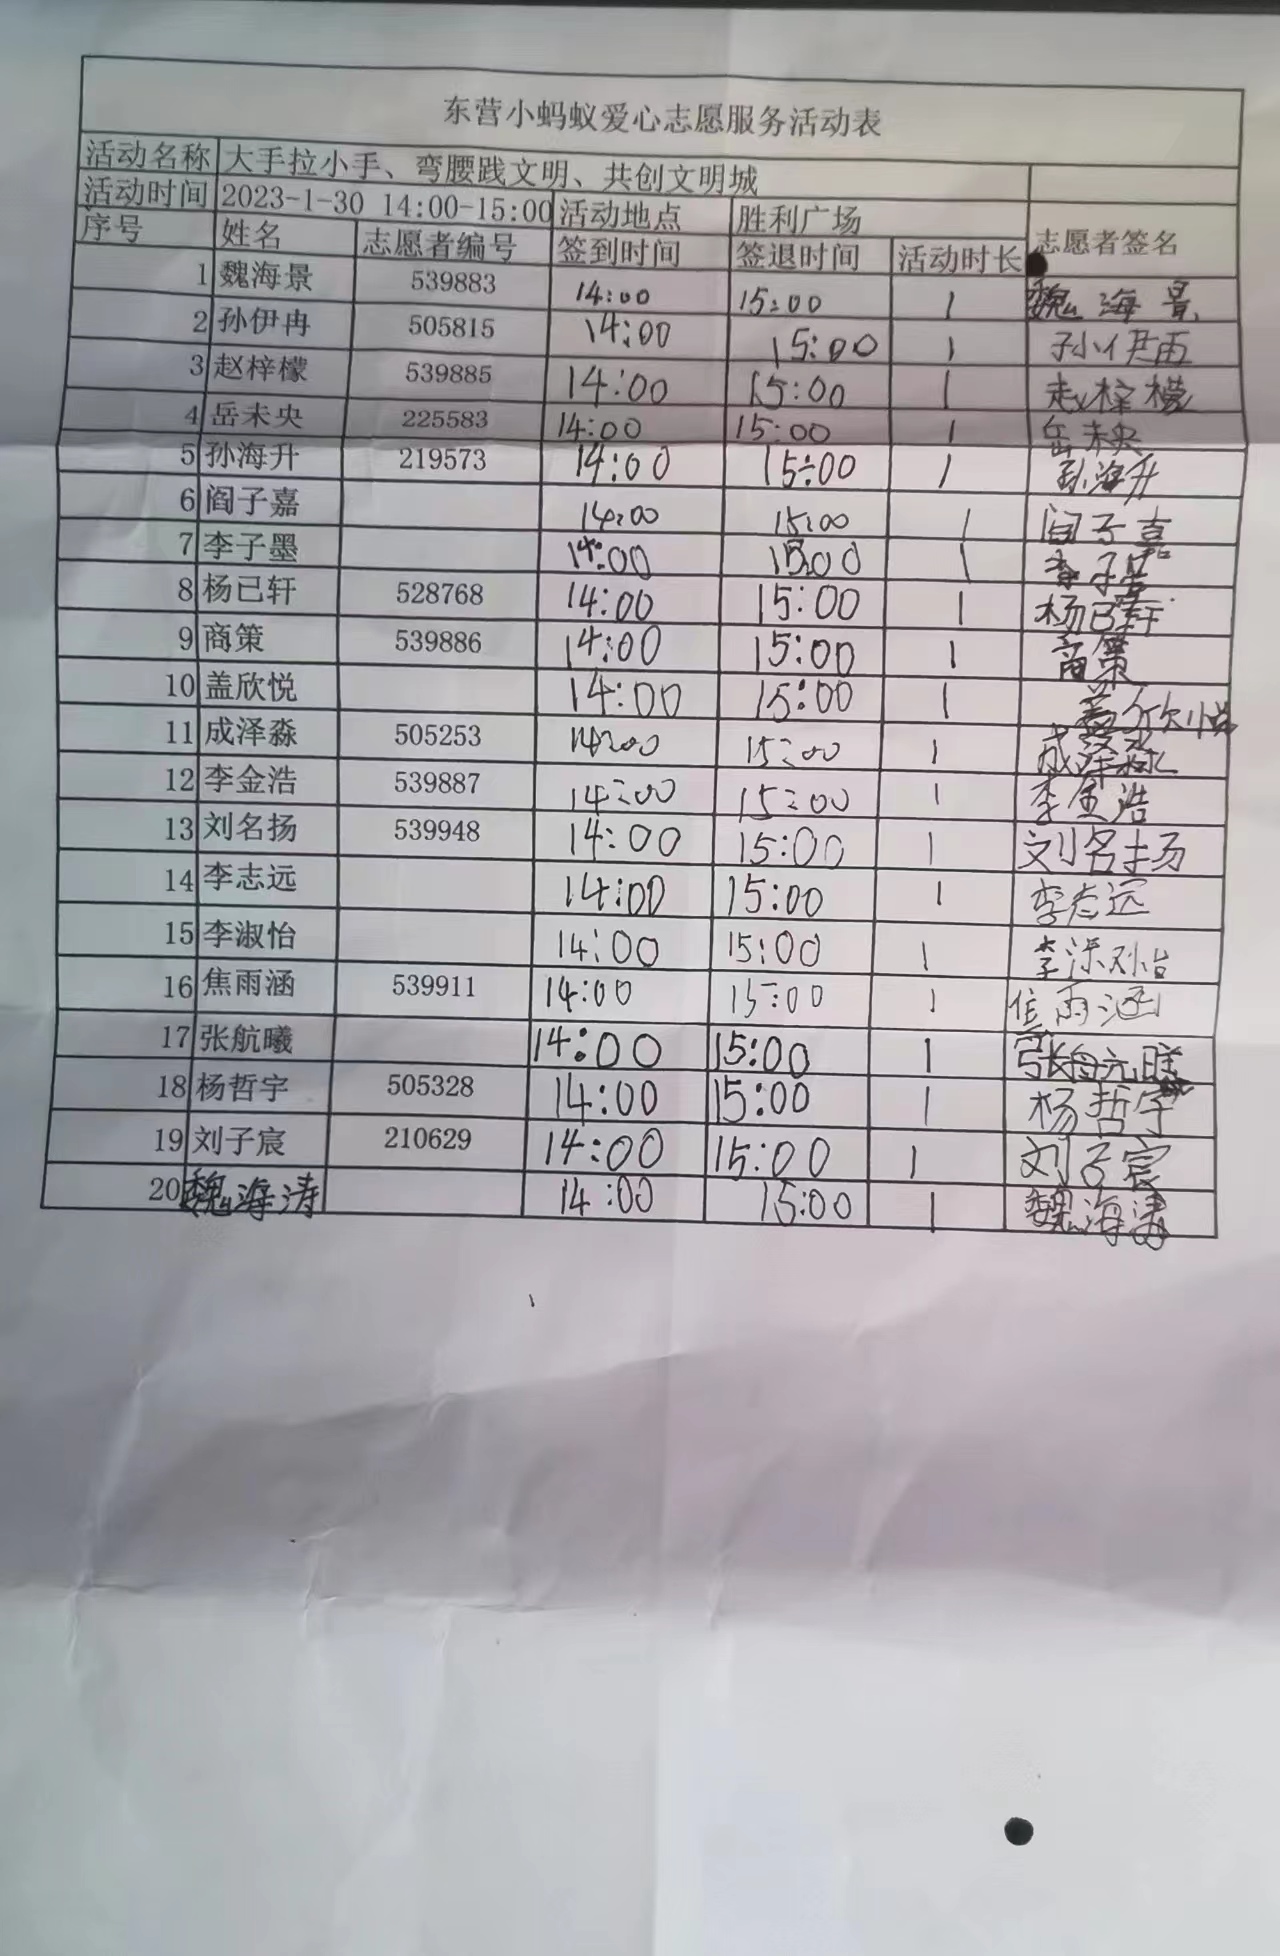 东营小蚂蚁爱心志愿服务活动表
活动名称 大手拉小手、弯腰践文明、共创文明城
活动时间 2023-1-30 14:00-15:00 活动地点 胜利广场
序号 姓名 志愿者编号 签到时间 签退时间 活动时长 志愿者签名
1 魏海景 539883 14:00 15:00 1 魏海景
2 孙伊冉 505815 14:00 15:00 1 孙伊冉
3 赵梓檬 539885 14:00 15:00 1 赵梓檬
4 岳未央 225583 14:00 15:00 1 岳未央
5 孙海升 219573 14:00 15:00 1 孙海升
6 阎子嘉 14:00 15:00 1 阎子嘉
7 李子墨 14:00 15:00 1 李子墨
8 杨已轩 528768 14:00 15:00 1 杨已轩
9 商策 539886 14:00 15:00 1 商策
10 盖欣悦 14:00 15:00 1 盖欣悦
11 成泽淼 505253 14:00 15:00 1 成泽淼
12 李金浩 539887 14:00 15:00 1 李金浩
13 刘名扬 539948 14:00 15:00 1 刘名扬
14 李志远 14:00 15:00 1 李志远
15 李淑怡 14:00 15:00 1 李淑怡
16 焦雨涵 539911 14:00 15:00 1 焦雨涵
17 张航曦 14:00 15:00 1 张航曦
18 杨哲宇 505328 14:00 15:00 1 杨哲宇
19 刘子宸 210629 14:00 15:00 1 刘子宸
20 魏海涛 14:00 15:00 1 魏海涛